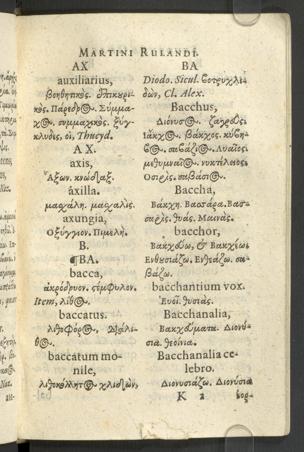 MARTINI RULANDI.
AX
auxiliarius,
βοηθητικὸς. ἐπικουρι-
κὸς. Πάρεδρος. Σύμμα-
χος. συμμαχικὸς. ξύγ-
κλυδες, οἱ, Thucyd.
AX.
axis,
Ἄξων. κνώδαξ.
áxilla.
μαχάλη. μαχαλὶς.
axungia,
Οξύγγιον. Πιμελή.
B.
¶BA.
bacca,
ἀκρόδρυον.
Item, λίθος.
baccatus.
λιθοφόρος.
θος.
baccatum mo-
nile,
λιθοκόλλητος χλιδῶν,
BA
Diodo. Sicul.
δὼν, Cl. Alex.
Bacchus,
Διόνυσος. ζαγρεὺς.
ἰάκχος. βάκχος.
σαβάζιος. Λυαῖος.
μιθυμναῖος. νυκτέλιος.
Οσιρις.
Baccha,
Βάκχη. Βασσάρα. Βασ-
σαρὶς. θυὰς. Μαινὰς.
bacchor,
Βακχεύω, & Βακχίω.
Ενθυσιάζω. Ενθεάζω. σα-
βάζω.
bacchantium vox.
Ευοῖ. θυσιὰς.
Bacchanalia,
Βακχεύματα. Διονύ-
σια. θεοίνια.
Bacchanalia ce-
lebro.
Διονυσιάζω. Διονύσια
K 2
ἑορ-